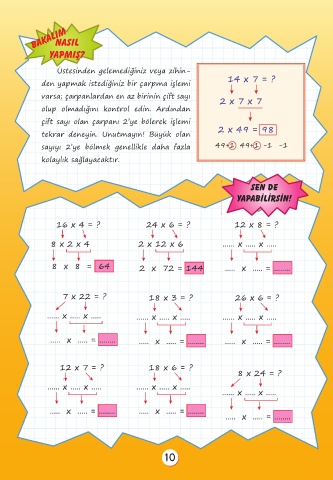 BAKALIM
NASIL
YAPMIŞ?
Üstesinden gelemediğiniz veya zihin-
den yapmak istediğiniz bir çarpma işlemi
varsa; çarpanlardan en az birinin çift sayı
olup olmadığını kontrol edin. Ardından
çift sayı olan çarpanı 2'ye bölerek işlemi
tekrar deneyin. Unutmayın! Büyük olan
sayıyı 2'ye bölmek genellikle daha fazla
kolaylık sağlayacaktır.
14 x 7 = ?
2 x 7 x 7
2 x 49 = 98
49+1 49+1 -1 -1
SEN DE
YAPABİLİRSİN!
16 x 4 = ? 24 x 6 = ? 12 x 8 = ?
8 x 2 x 4 2 x 12 x 6 ..... x ..... x .....
8 x 8 = 64 2 x 72 = 144 ..... x ..... = ........
7 x 22 = ? 18 x 3 = ? 26 x 6 = ?
..... x ..... x ..... ..... x ..... x ..... ..... x ..... x .....
..... x ..... = ........ ..... x ..... = ........ ..... x ..... = ........
12 x 7 = ? 18 x 6 = ? 8 x 24 = ?
..... x ..... x ..... ..... x ..... x ..... ..... x ..... x .....
..... x ..... = ........ ..... x ..... = ........ ..... x ..... = ........
10